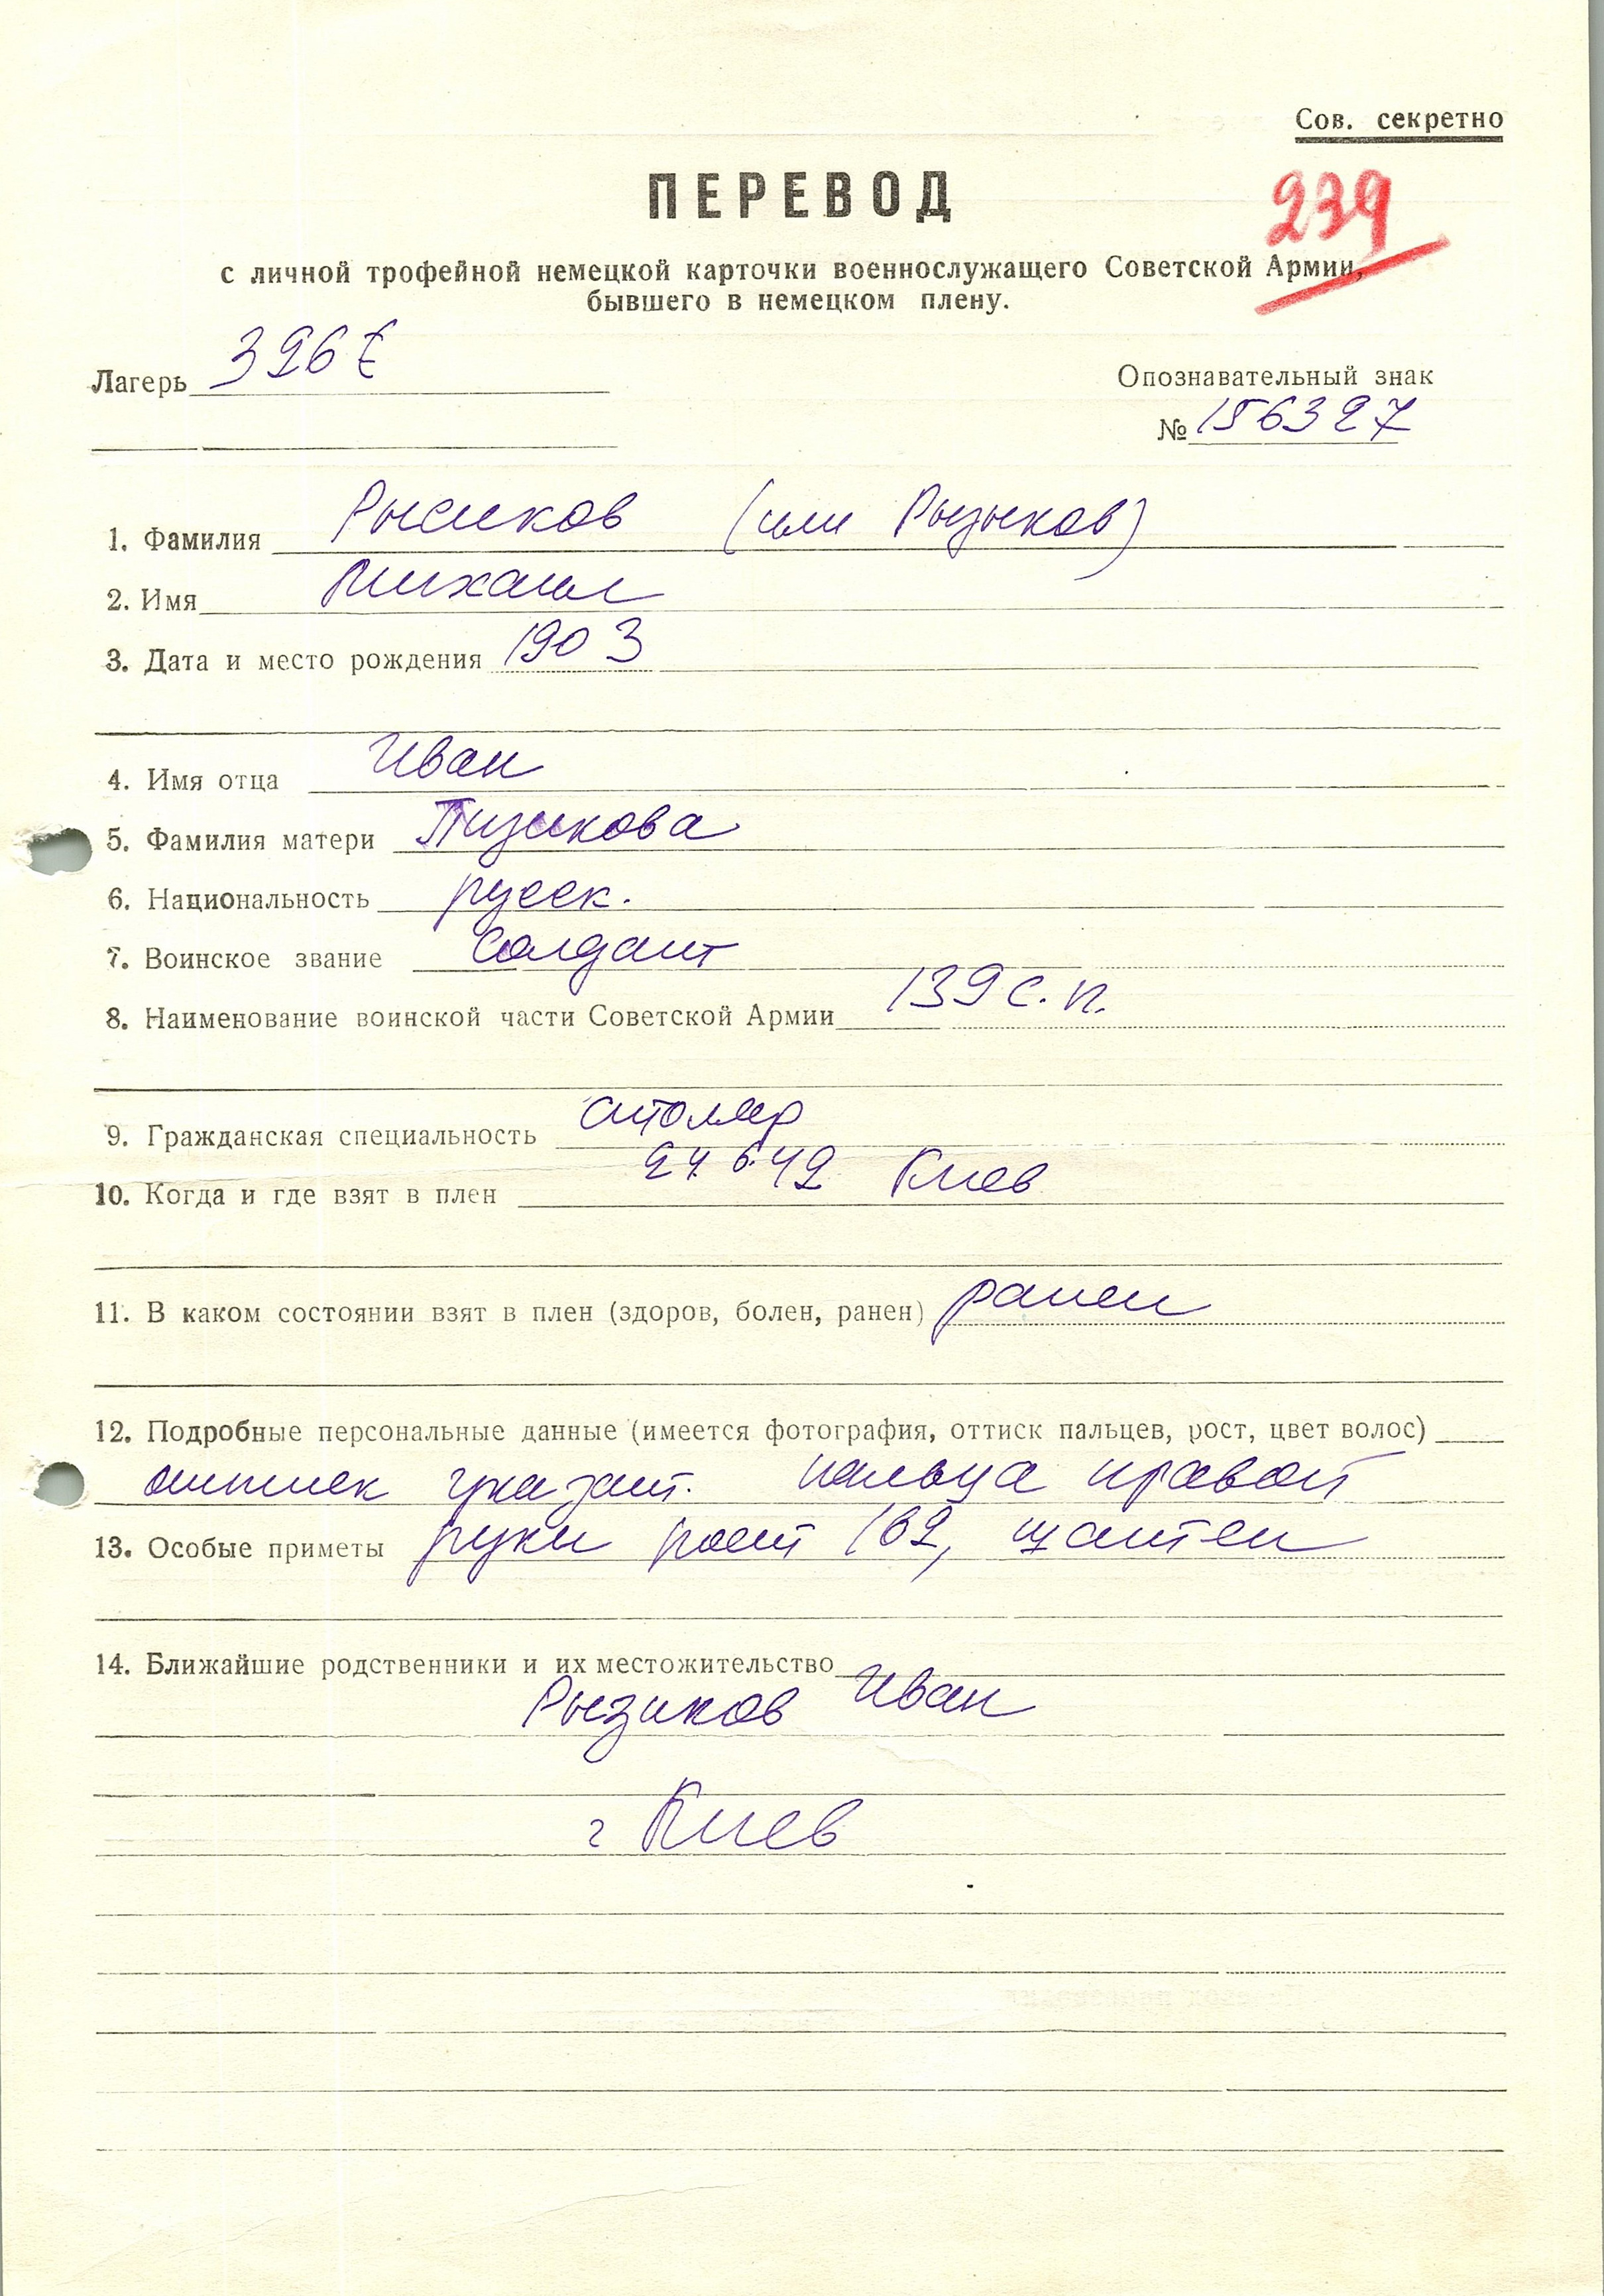 Сов. секретно
ПЕРЕВОД
239
с личной трофейной немецкой карточки военнослужащего Советской Армии,
бывшего в немецком плену.
Лагерь 326 Е
Опознавательный знак
№ 156327
1. Фамилия Рысиков (или Рызыков)
2. Имя Михаил
3. Дата и место рождения 1903
4. Имя отца Иван
5. Фамилия матери Пизикова
6. Национальность русск.
7. Воинское звание Солдат
8. Наименование воинской части Советской Армии 139 с. п.
9. Гражданская специальность столяр
10. Когда и где взят в плен 6.42 Киев
11. В каком состоянии взят в плен (здоров, болен, ранен) ранен
12. Подробные персональные данные (имеется фотография, оттиск пальцев, рост, цвет волос)
оттиск указат. пальца правой
13. Особые приметы руки рост 162, шатен
14. Ближайшие родственники и их местожительство
Рызиков Иван
г Киев